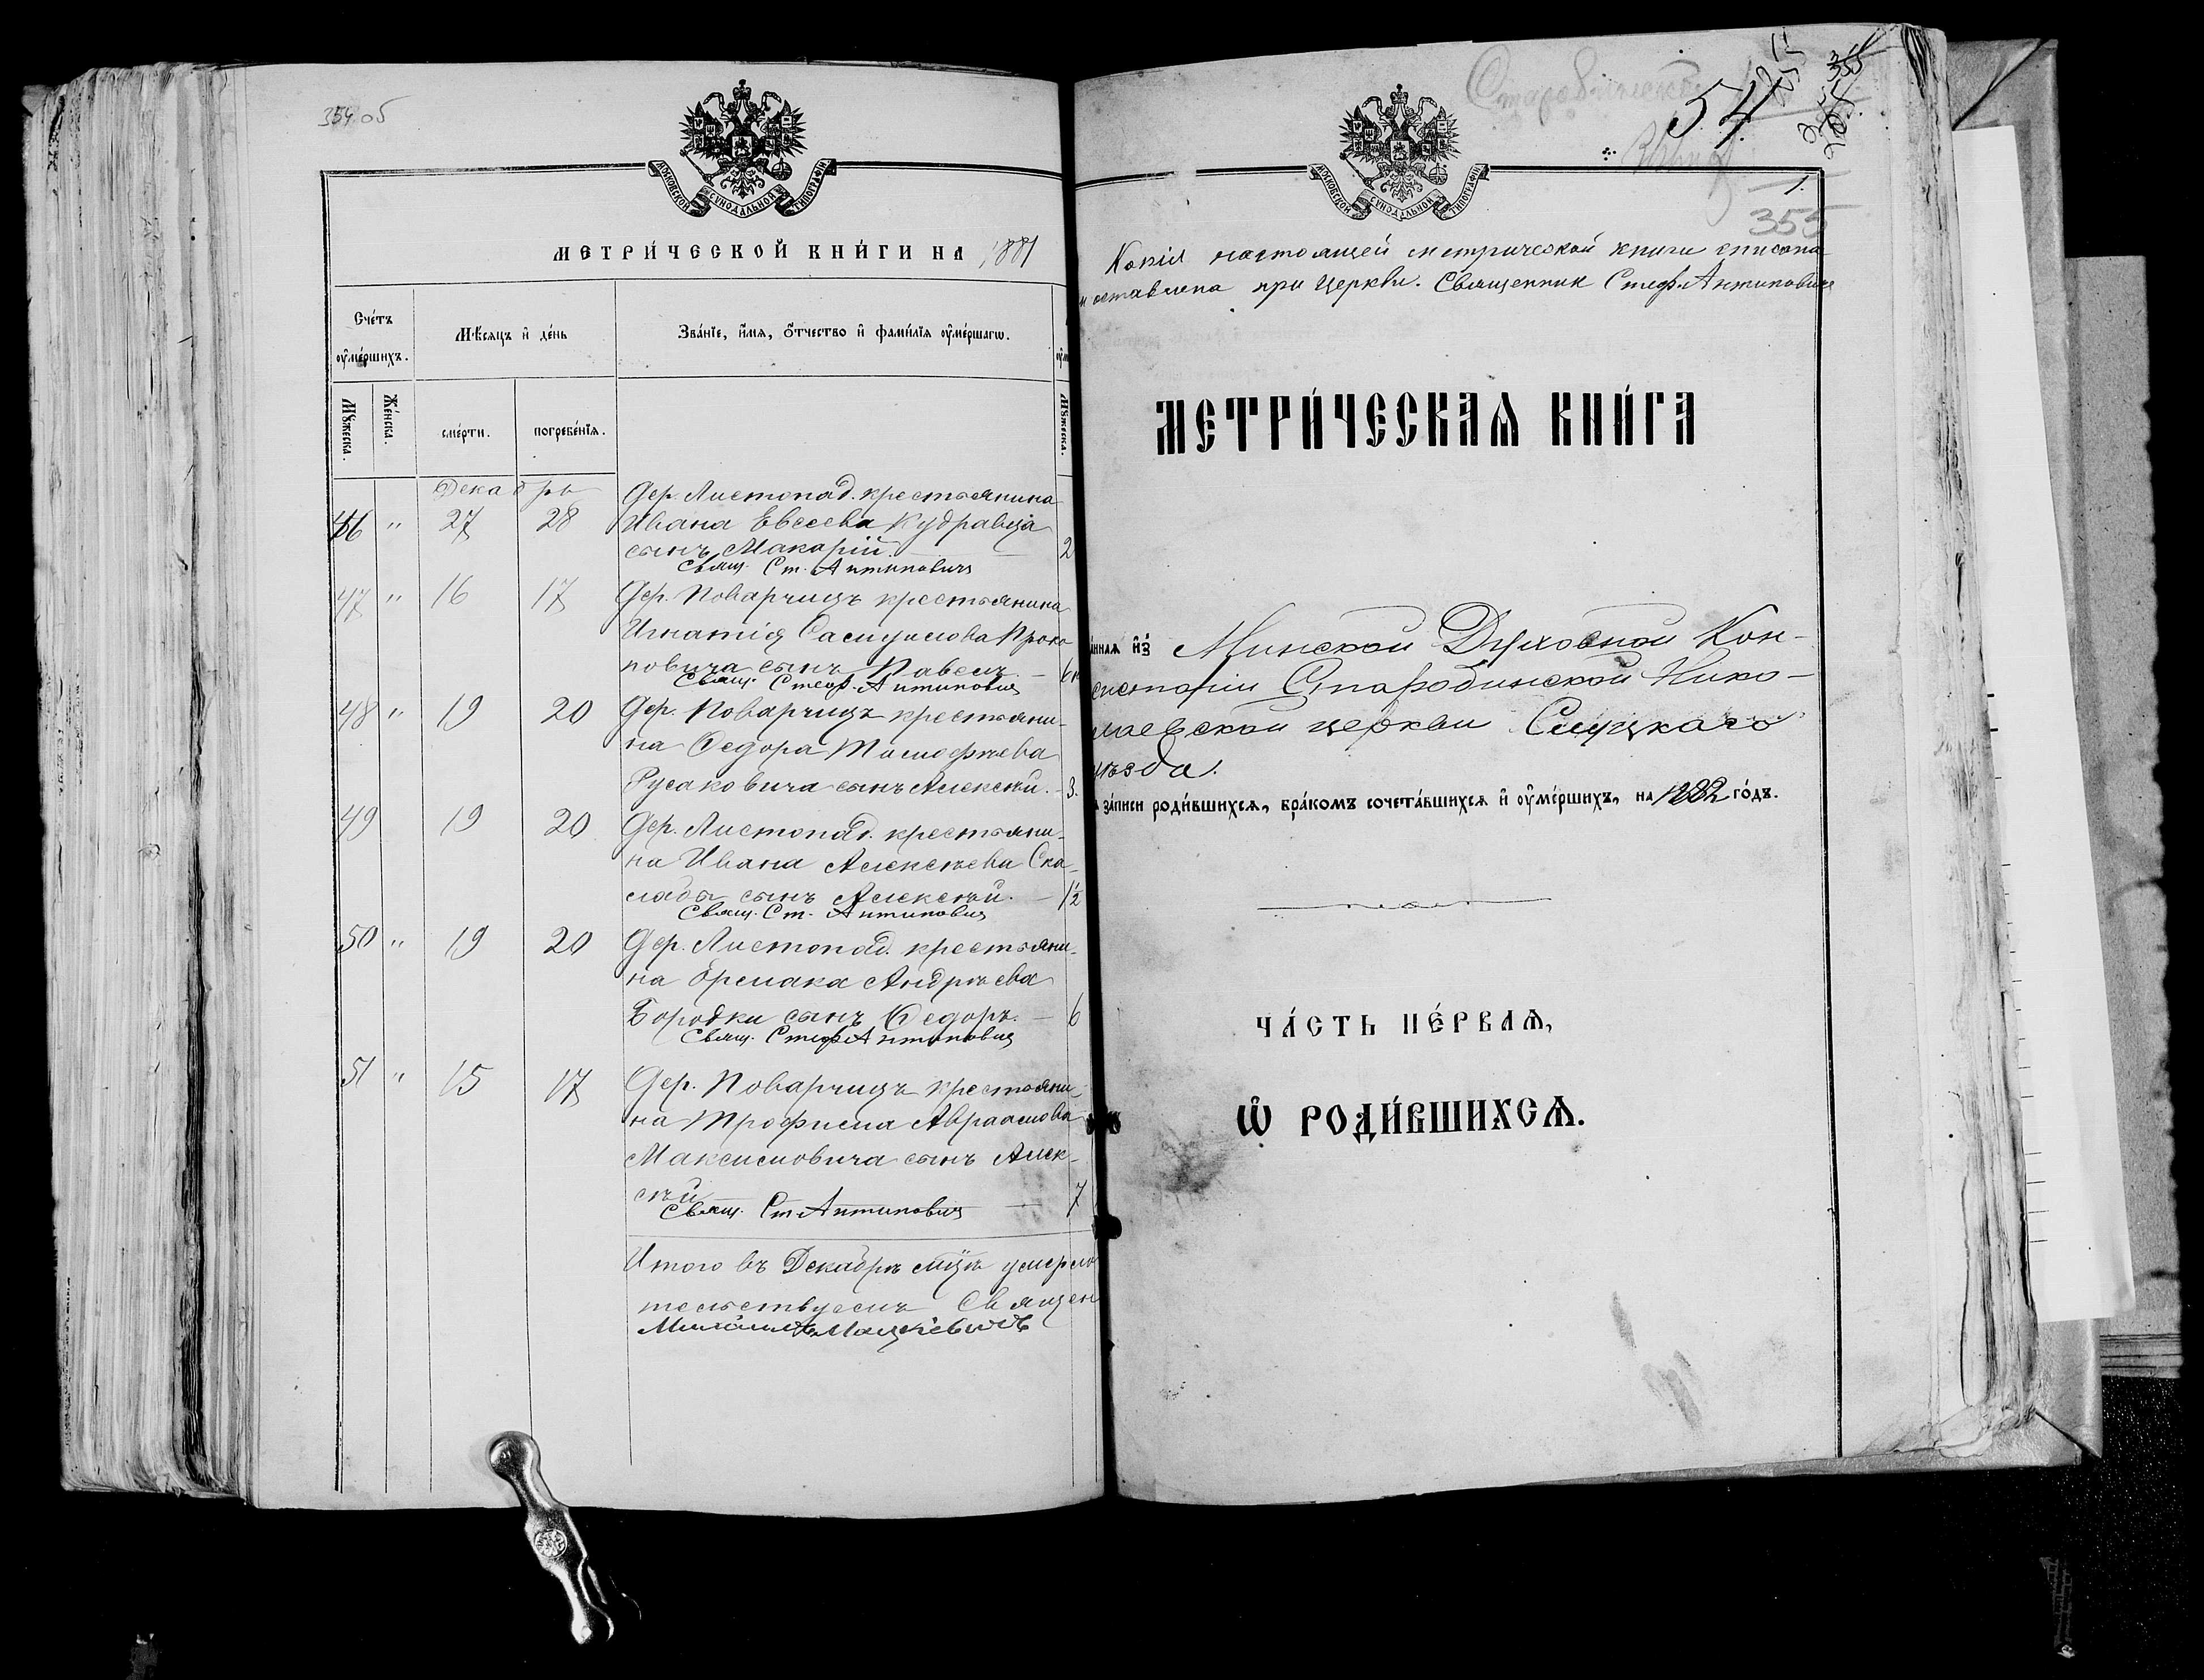 354 об
МОСКОВСКОЙ СУНОДАЛЬНОЙ ТИПОГРАФІИ
МЕТРИ́ЧЕСКОЙ КНИ́ГИ НА 1881
Сче́тъ оу҆ме́ршихъ.
Мѣ́сяцъ и҆ де́нь
Зва́нїе, и҆́мѧ, ѻ҆́тчество и҆ фами́лїѧ оу҆ме́ршагѡ.
Мꙋ́жеска.
Же́нска.
сме́рти.
погребе́нїѧ.
Мꙋ́жеска.
Декабрь
Дер. Листопад. крестьянина
46 " 27 28 Ивана Евсеева Кудравца
сынъ Макарій. 2
Свящ. Ст. Антиповичъ
47 " 16 17 Дер. Поварчицъ крестьянина
Игнатія Самуилова Проко
повича сынъ Павелъ. 6
Свящ. Стеф. Антиповичъ
48 " 19 20 Дер. Поварчицъ крестьяни-
на Ѳедора Тимофѣева
Русаковича сынъ Алексѣй. 3.
49 19 20 Дер. Листопад. крестьяни-
на Ивана Алексѣева Ска-
лабы сынъ Алексѣй. 1½
Свящ. Ст. Антиповичъ
50 " 19 20 Дер. Листопад. крестьяни-
на Ермака Андрѣева
Бородки сынъ Ѳедоръ. 6
Свящ. Стеф. Антиповичъ
51 " 15 17 Дер. Поварчицъ крестьяни-
на Трофима Авраамова
Максимовича сынъ Алек-
сѣй 7
Свящ. Ст. Антиповичъ
Итого въ Декабрѣ мцѣ умерло
тельствуемъ Священ
Мацкевичъ
54
355
1.
355
МОСКОВСКОЙ СУНОДАЛЬНОЙ ТИПОГРАФІИ
Копія настоящей метрической книги списана
и оставлена при Церкви. Священник Стеф. Антиповичъ
МЕТРИ́ЧЕСКАѦ КНИ́ГА
а́ннаѧ и҆з̾ Минской Духовной Кон-
систоріи Старобинской Нико-
лаевской церкви Слуцкаго
уѣзда.
за́писи роди́вшихсѧ, бра́комъ сочета́вшихсѧ и҆ оу҆ме́ршихъ, на 1882 го́дъ.
ЧА́СТЬ ПЕ́РВАѦ,
Ѡ҆ РОДИ́ВШИХСѦ.